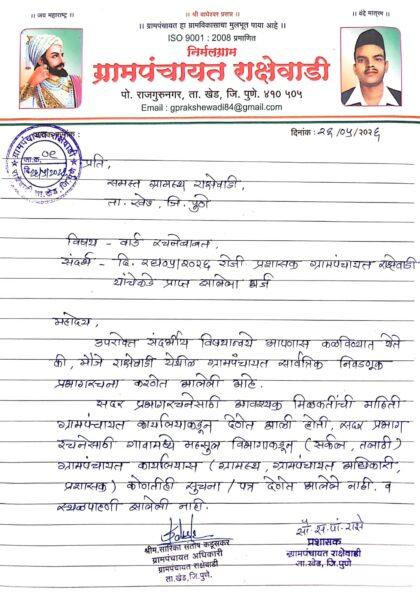 ॥ जय महाराष्ट्र ॥
॥ श्री वाघेश्वर प्रसन्न ॥
॥ वंदे मातरम् ॥
॥ ग्रामपंचायत हा ग्रामविकासाचा मुलभूत पाया आहे ॥
ISO 9001 : 2008 प्रमाणित
निर्मलग्राम
ग्रामपंचायत राक्षेवाडी
पो. राजगुरुनगर, ता. खेड, जि. पुणे. ४१० ५०५
Email : gprakshewadi84@gmail.com
दिनांक: २६/०५/२०२६
ग्रामपंचायत राक्षेवाडी
जा.क्र.
ता.खेड, जि.पुणे
प्रति,
समस्त ग्रामस्थ राक्षेवाडी,
ता. खेड, जि. पुणे
विषय - वार्ड रचनेबाबत.
संदर्भ - दि. /०५/२०२६ रोजी प्रशासक ग्रामपंचायत राक्षेवाडी
यांचेकडे प्राप्त झालेला अर्ज
महोदय,
उपरोक्त संदर्भीय विषयान्वये आपणास कळविण्यात येते
की, मौजे राक्षेवाडी येथील ग्रामपंचायत सार्वत्रिक निवडणूक
प्रभागरचना करणेत आलेली आहे.
सदर प्रभागरचनेसाठी आवश्यक मिळकतींची माहिती
ग्रामपंचायत कार्यालयाकडून देणेत आली होती, सदर प्रभाग
रचनेसाठी गावामध्ये महसूल विभागाकडून (सर्कल, तलाठी)
ग्रामपंचायत कार्यालयास (ग्रामस्थ, ग्रामपंचायत अधिकारी,
प्रशासक) कोणतीही सूचना / पत्र देणेत आलेले नाही. व
स्थळपाहणी झालेली नाही.
श्रीम. सारिका संतोष कडूसकर
ग्रामपंचायत अधिकारी
ग्रामपंचायत राक्षेवाडी
ता.खेड, जि.पुणे.
सौ. स. पां. राक्षे
प्रशासक
ग्रामपंचायत राक्षेवाडी
ता.खेड, जि.पुणे.